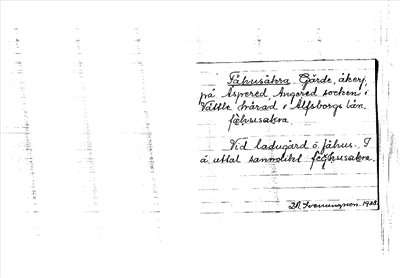 Fähusåkra. Gärde, åker,
på Aspered Angered socken i
Vättle härad i Älfsborgs län.
fœhusakra.
Vid ladugård o. fähus. I
ä. uttal sannolikt
D. Sverrungson. 1928.